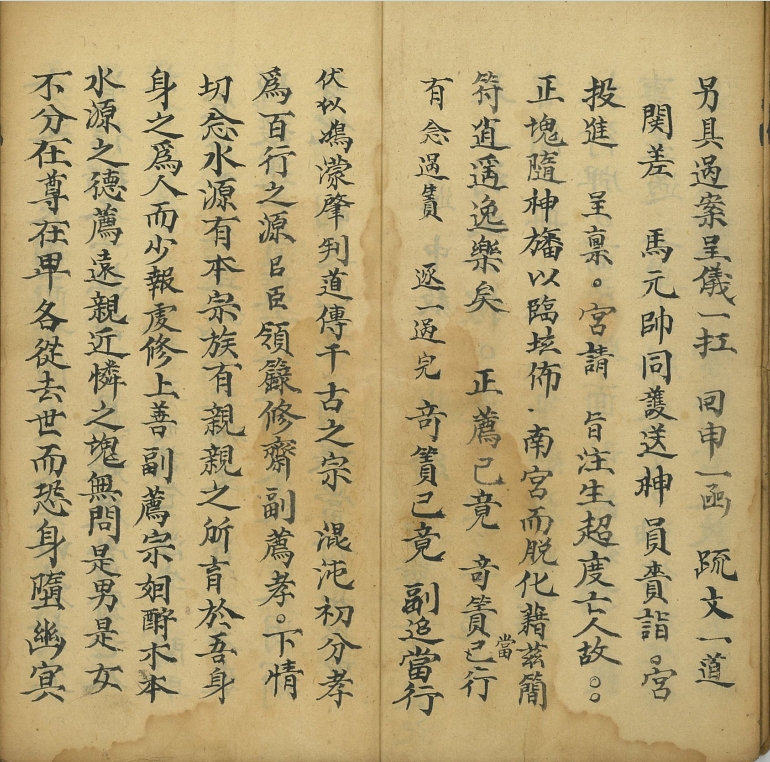 另具過案呈儀一扛 回申一函 疏文一道
関差 馬元帥同護送神員賫詣。宮
投進 呈禀。宮請 旨注生超度亡人故。。
正塊隨神旛以臨坛佈·南宮而脱化藉茲簡
符逍遥逸樂矣。正薦已竟 竒籫已行
當
有念過籫 逐一過完 竒籫已竟 副追當行
伏似鴻濛肇判道傳千古之宗 混沌初分孝
爲百行之源吕臣領籙修齋副薦孝。下情
切念水源有本宗族有親親之所育於吾身
身之爲人而少報虔修上善副薦宗姻酧木本
水源之德薦遠親近憐之塊無問是男是女
不分在尊在甲各從去世而恐身墮幽㝠